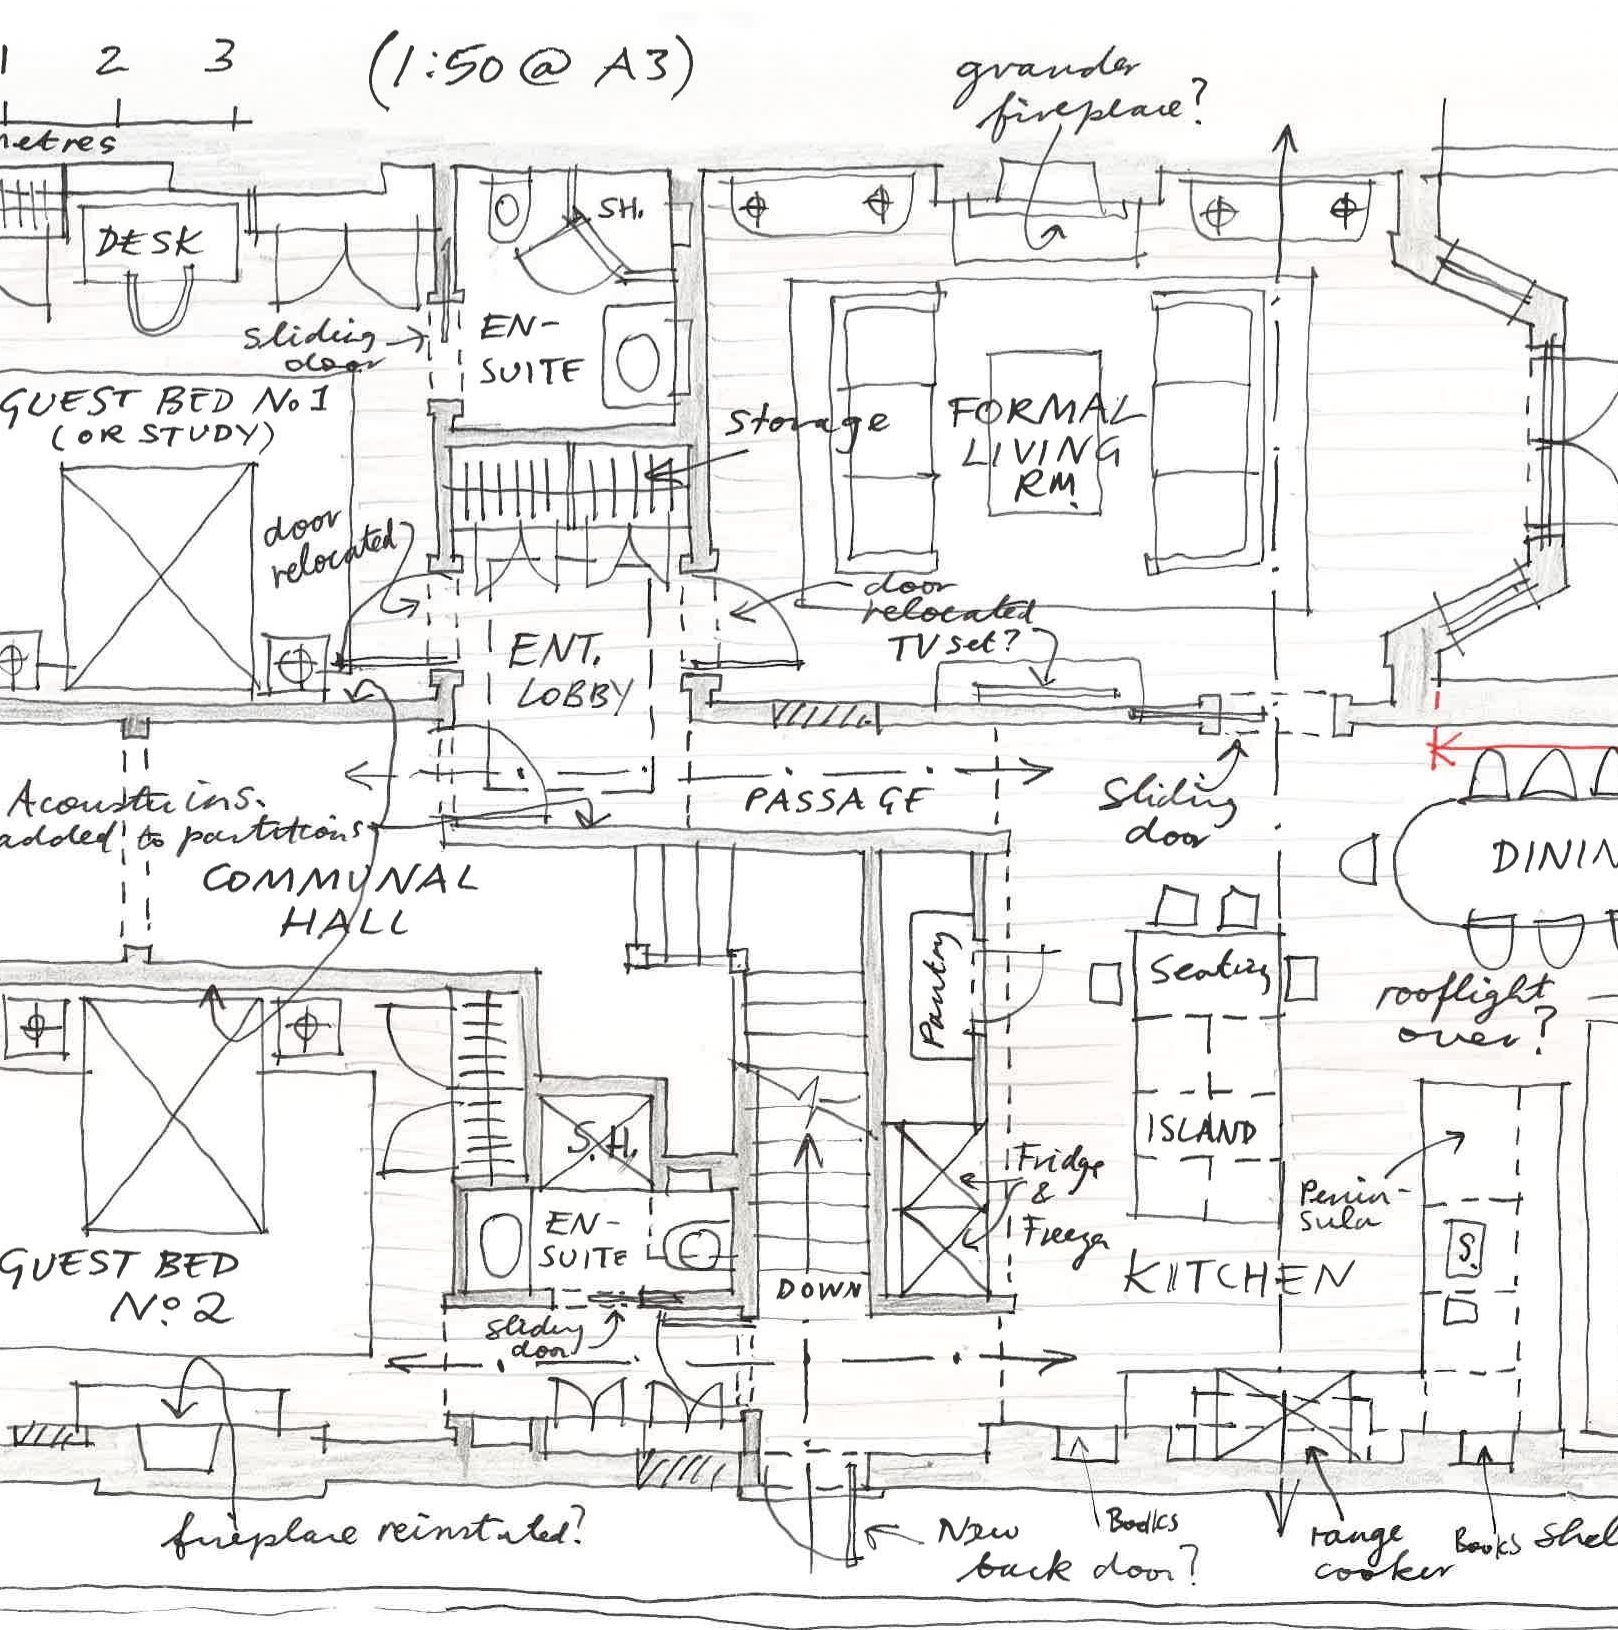 1 2 3
(1:50 @ A3)
metres
grander
fireplace?
DESK
SH.
sliding
door
EN-
SUITE
GUEST BED No.1
(OR STUDY)
storage
FORMAL
LIVING
RM.
door
relocated
door
relocated
TV set?
ENT.
LOBBY
PASSAGE
Sliding
door
Acoustic ins.
added to partitions
COMMUNAL
HALL
DININ
Pantry
Seating
rooflight
over?
ISLAND
S.H.
Fridge
&
Freezer
Penin-
sula
S.
EN-
SUITE
GUEST BED
No.2
DOWN
KITCHEN
sliding
door
fireplace reinstated?
New
back door?
Books
range
cooker
Books
Shel